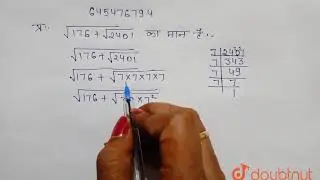 645476794
प्रः √176+√2401 का मान है:-
√176+√2401
√176+√7×7×7×7
√176+√ ×7²
7 2401
7 343
7 49
7 7
1
doubtnut